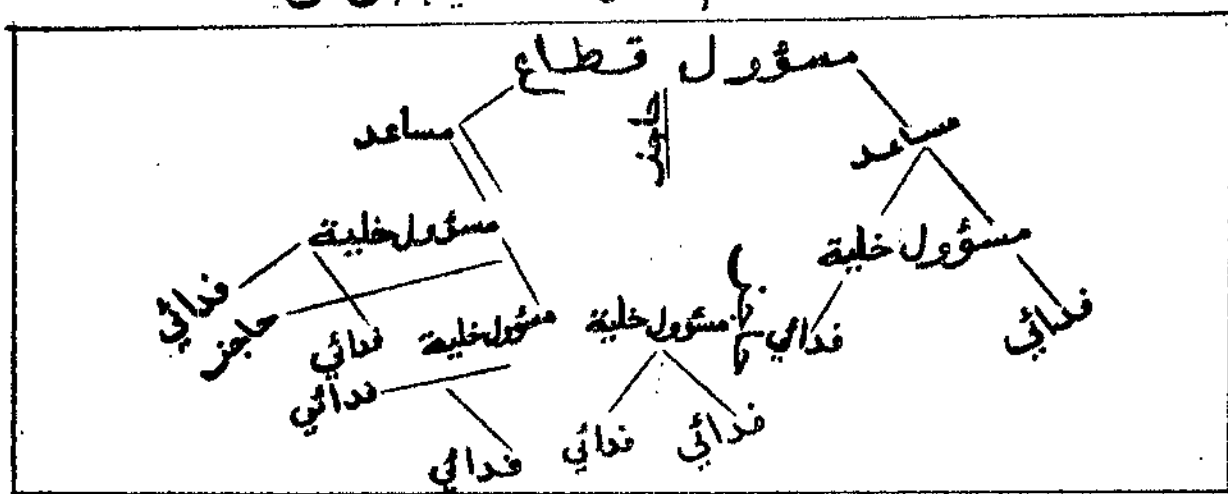 مسؤول قطاع
حاجز
مساعد
مساعد
مسؤول خلية
مسؤول خلية
فدائي
فدائي
حاجز
مسؤول خلية
مسؤول خلية
فدائي
فدائي
فدائي
فدائي
فدائي
فدائي
فدائي